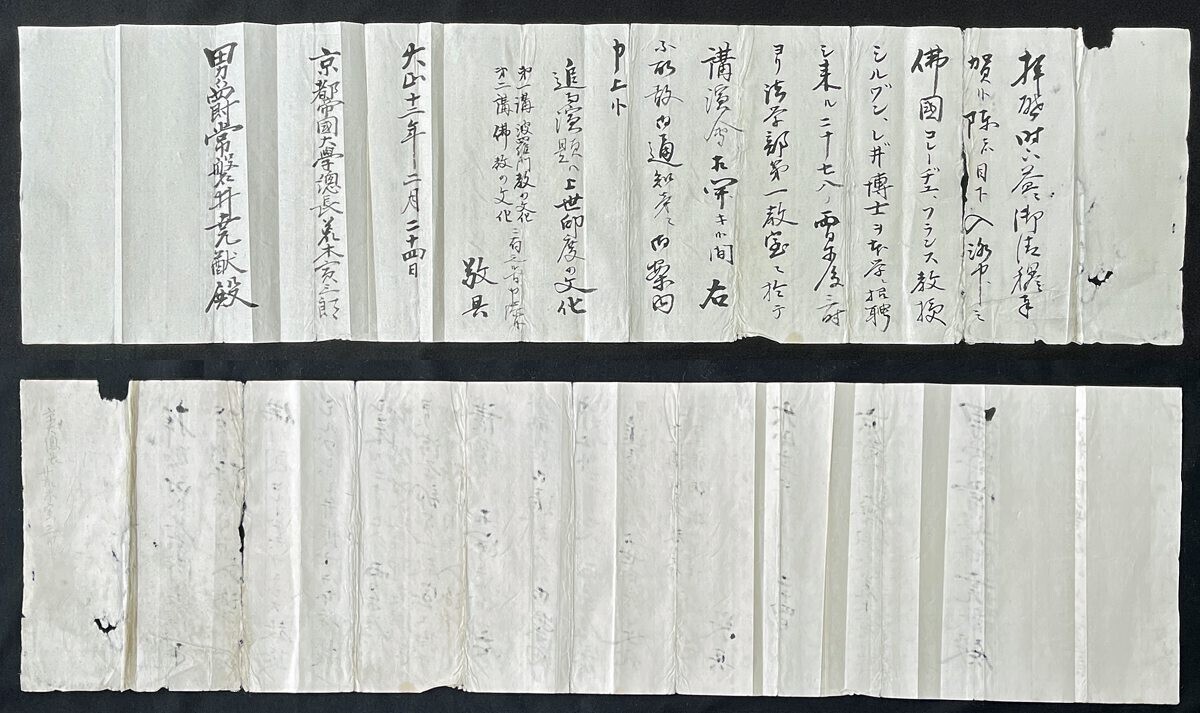 拝啓時下益々御清穆奉
賀候陳者目下入洛中ノ
佛國コレーヂュ、フランス教授
シルヴン、レ井博士ヲ本学ニ招聘
シ来ル二十七八ノ両日午后三時
ヨリ法学部第一教室ニ於テ
講演会相開キ候間右
不取敢内通知旁々御案内
申上候
追而演題ハ上世印度の文化
第一講 波羅門教の文化
第二講 佛教の文化
敬具
大正十三年二月二十四日
京都帝國大學總長荒木寅三郎
男爵常磐井堯猷殿